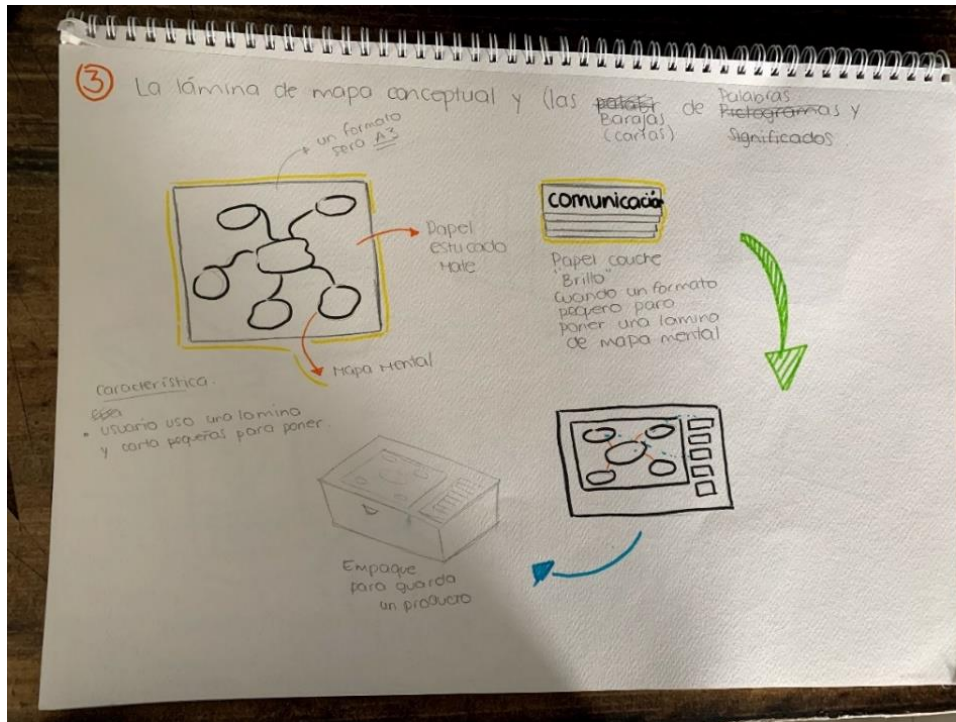 3
La lámina de mapa conceptual y (las palabr de Palabras Pictogramas y
Barajas
(cartas)
significados
un formato
sera A3
Papel
estucado
Mate
Mapa Mental
comunicación
Papel couche
"Brillo"
cuando un formato
pequero para
poner una lamina
de mapa mental
característica.
• usuario uso una lamina
y carta pequeñas para poner.
Empaque
para guarda
un producto